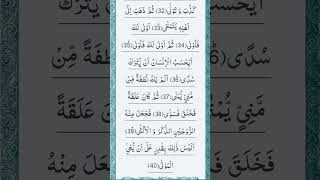 كَذَّبَ وَ تَوَلّٰى(32) ثُمَّ ذَهَبَ اِلٰۤى
اَهْلِهٖ یَتَمَطّٰى(33) اَوْلٰى لَكَ
فَاَوْلٰى(34) ثُمَّ اَوْلٰى لَكَ فَاَوْلٰى(35)
اَیَحْسَبُ الْاِنْسَانُ اَنْ یُّتْرَكَ
سُدًى(36) اَلَمْ یَكُ نُطْفَةً مِّنْ
مَّنِیٍّ یُّمْنٰى(37) ثُمَّ كَانَ عَلَقَةً
فَخَلَقَ فَسَوّٰى(38) فَجَعَلَ مِنْهُ
الزَّوْجَیْنِ الذَّكَرَ وَ الْاُنْثٰى(39)
اَلَیْسَ ذٰلِكَ بِقٰدِرٍ عَلٰۤى اَنْ یُّحْیِﰯ
الْمَوْتٰى(40)